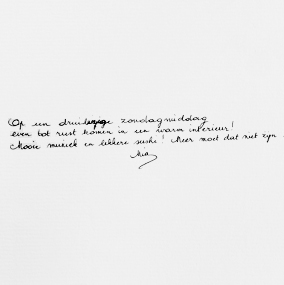 Op een druilerige zondagmiddag
even tot rust komen in een warm interieur!
Mooie muziek en lekkere sushi! Meer moet dat niet zijn.
Mia